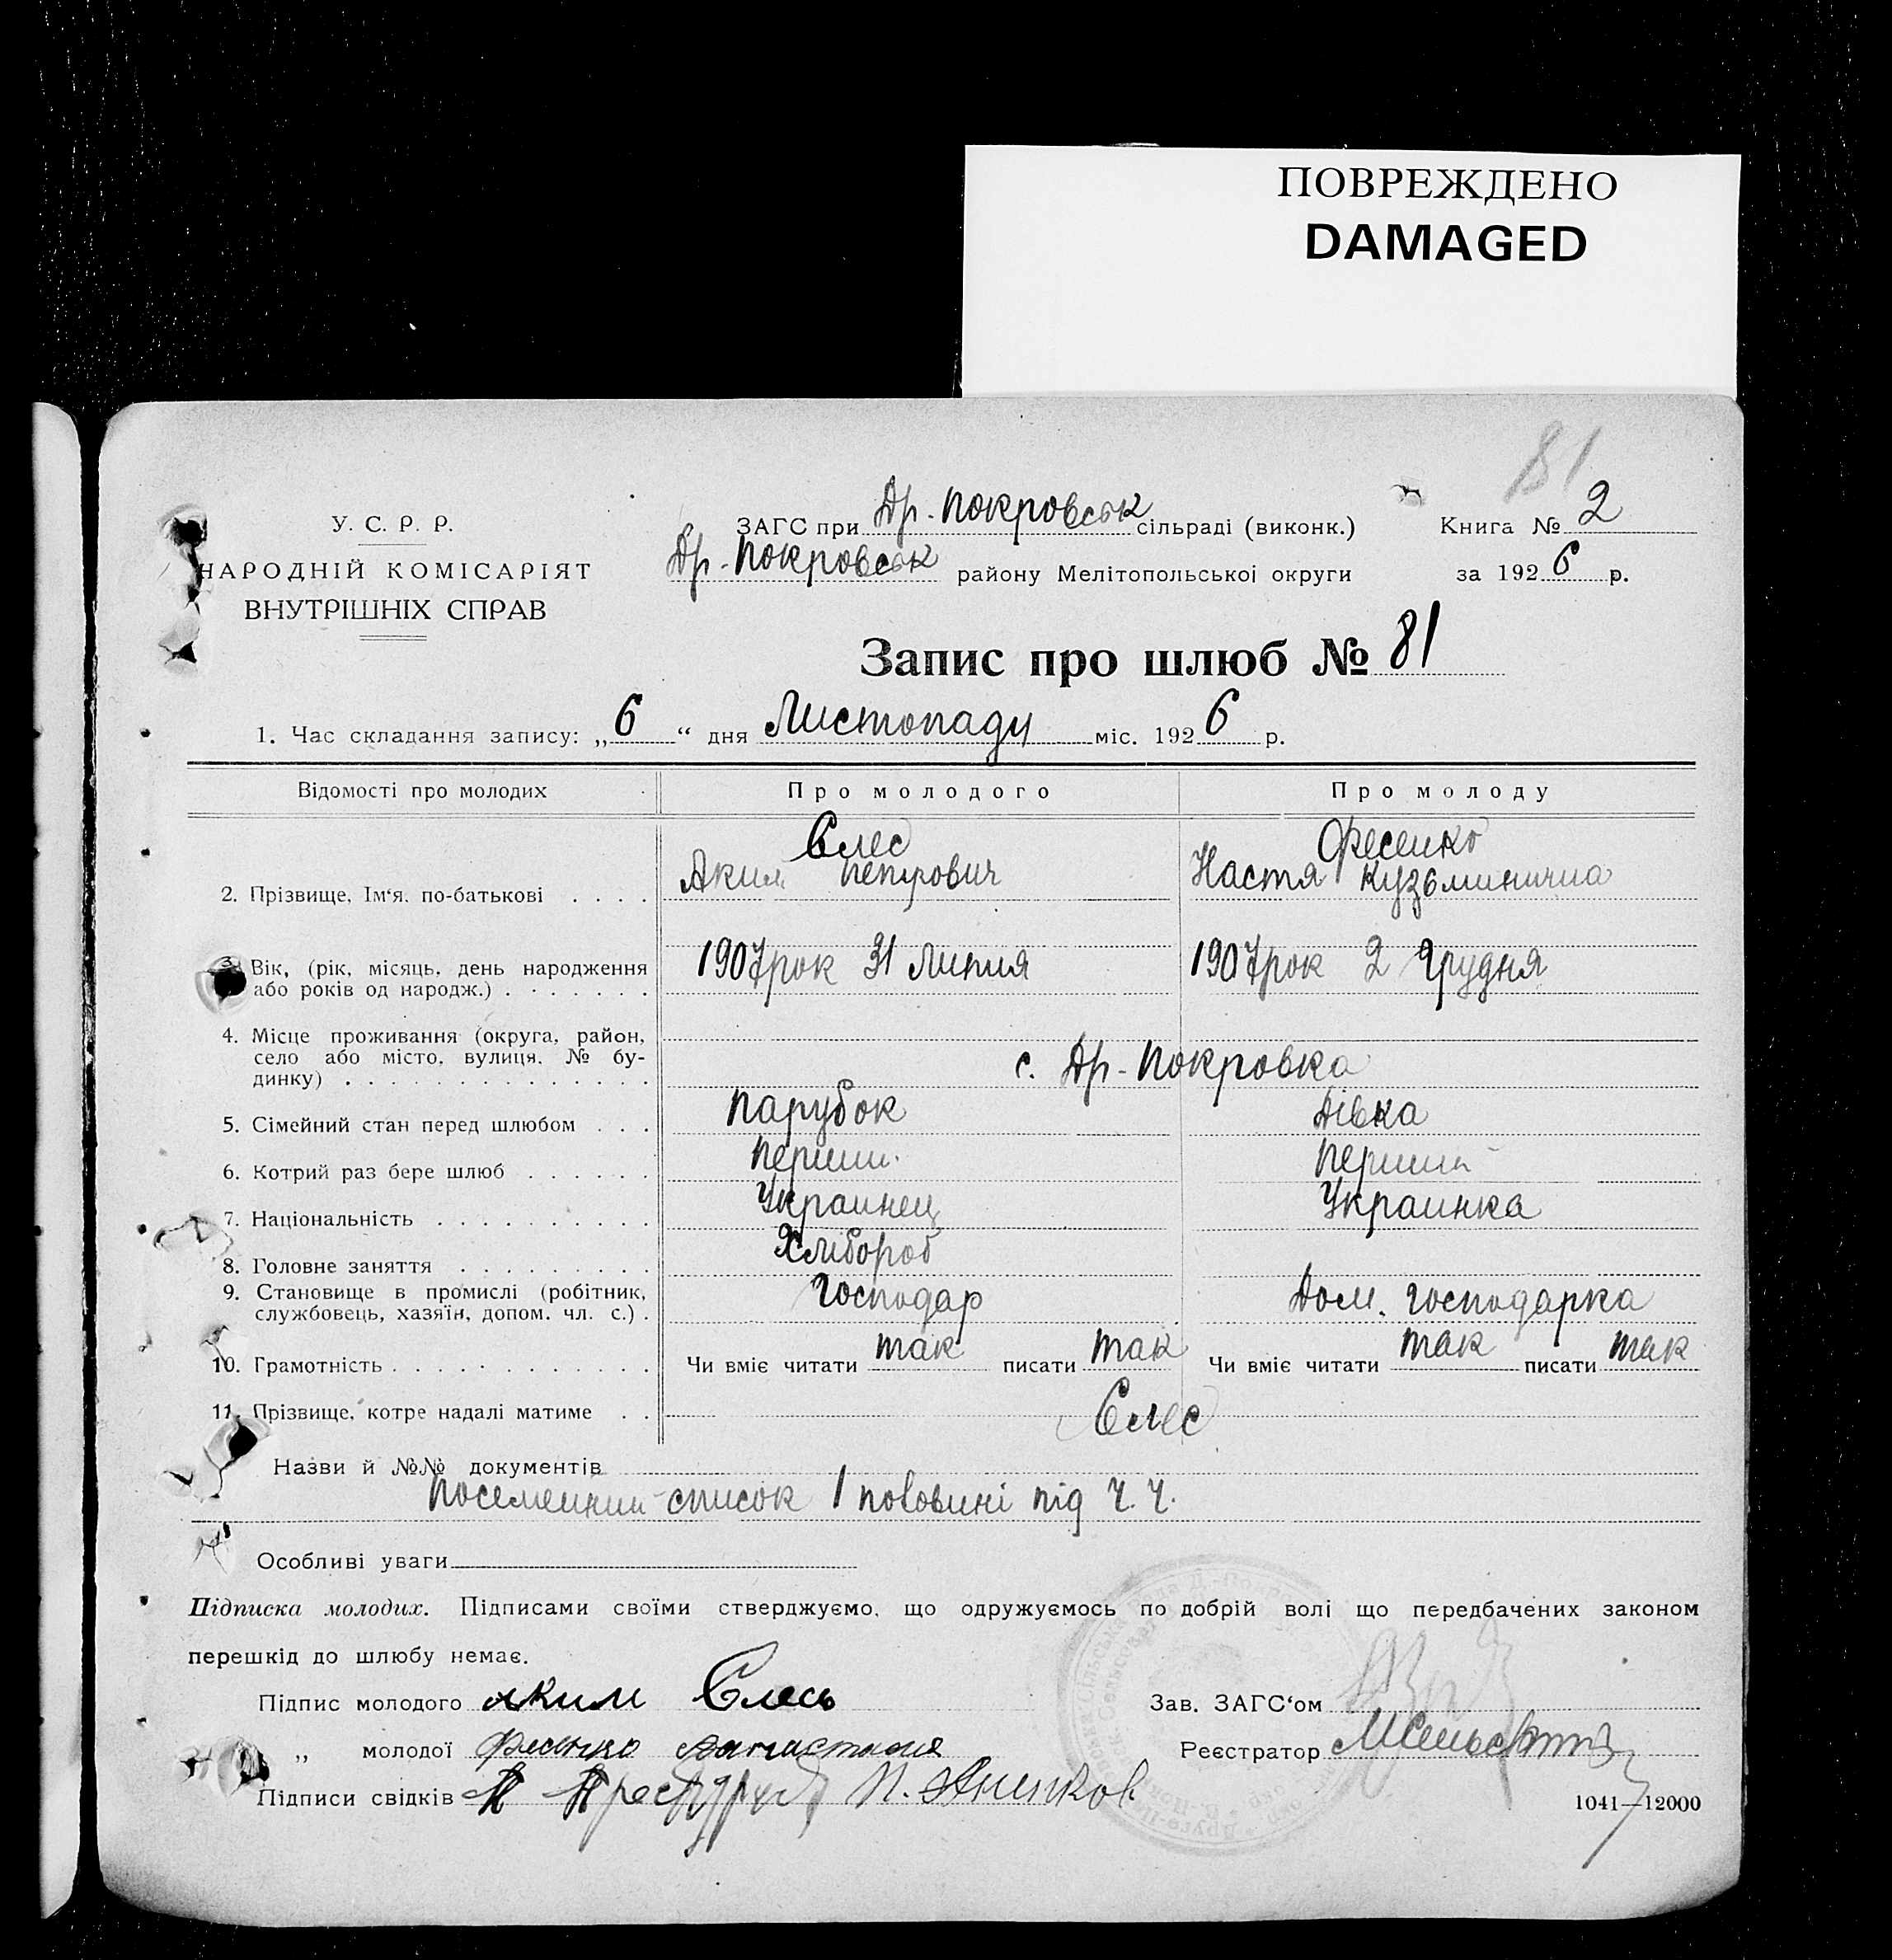 ПОВРЕЖДЕНО
DAMAGED
81
У. С. Р. Р.
НАРОДНІЙ КОМІСАРІЯТ
ВНУТРІШНІХ СПРАВ
ЗАГС при Др.-Покровськ сільраді (виконк.)
Др.-Покровськ району Мелітопольської округи
Книга № 2
за 1926 р.
Запис про шлюб № 81
1. Час складання запису: „6“ дня Листопаду міс. 1926 р.
Відомості про молодих
Про молодого
Про молоду
2. Прізвище, Ім‘я, по-батькові . . . .
Єлес
Аким Петрович
Фесенко
Настя Кузьминична
3. Вік, (рік, місяць, день народження
або років од народж.) . . . . . . .
1907 рок 31 Липня
1907 рок 2 Грудня
4. Місце проживання (округа, район,
село або місто, вулиця, № бу-
динку) . . . . . . . . . . . . . .
с. Др-Покровка
5. Сімейний стан перед шлюбом . . .
Парубок
Дівка
6. Котрий раз бере шлюб . . . . . .
Перший
Перший
7. Національність . . . . . . . . . .
Украинец
Украинка
8. Головне заняття . . . . . . . . .
Хлібороб
9. Становище в промислі (робітник,
службовець, хазяїн, допом. чл. с.) .
Господар
Дом. господарка
10. Грамотність . . . . . . . . . . . .
Чи вміє читати так писати так
Чи вміє читати так писати так
11. Прізвище, котре надалі матиме . .
Єлес
Назви й №№ документів
Посемейний список 1 половині під Ч. Ч.
Особливі уваги
Підписка молодих. Підписами своїми стверджуємо, що одружуємось по добрій волі що передбачених законом
перешкід до шлюбу немає.
Підпис молодого Аким Єлесь
„ молодої Фесенко Анастасия
Підписи свідків
Зав. ЗАГС‘ом
Реєстратор
1041—12000